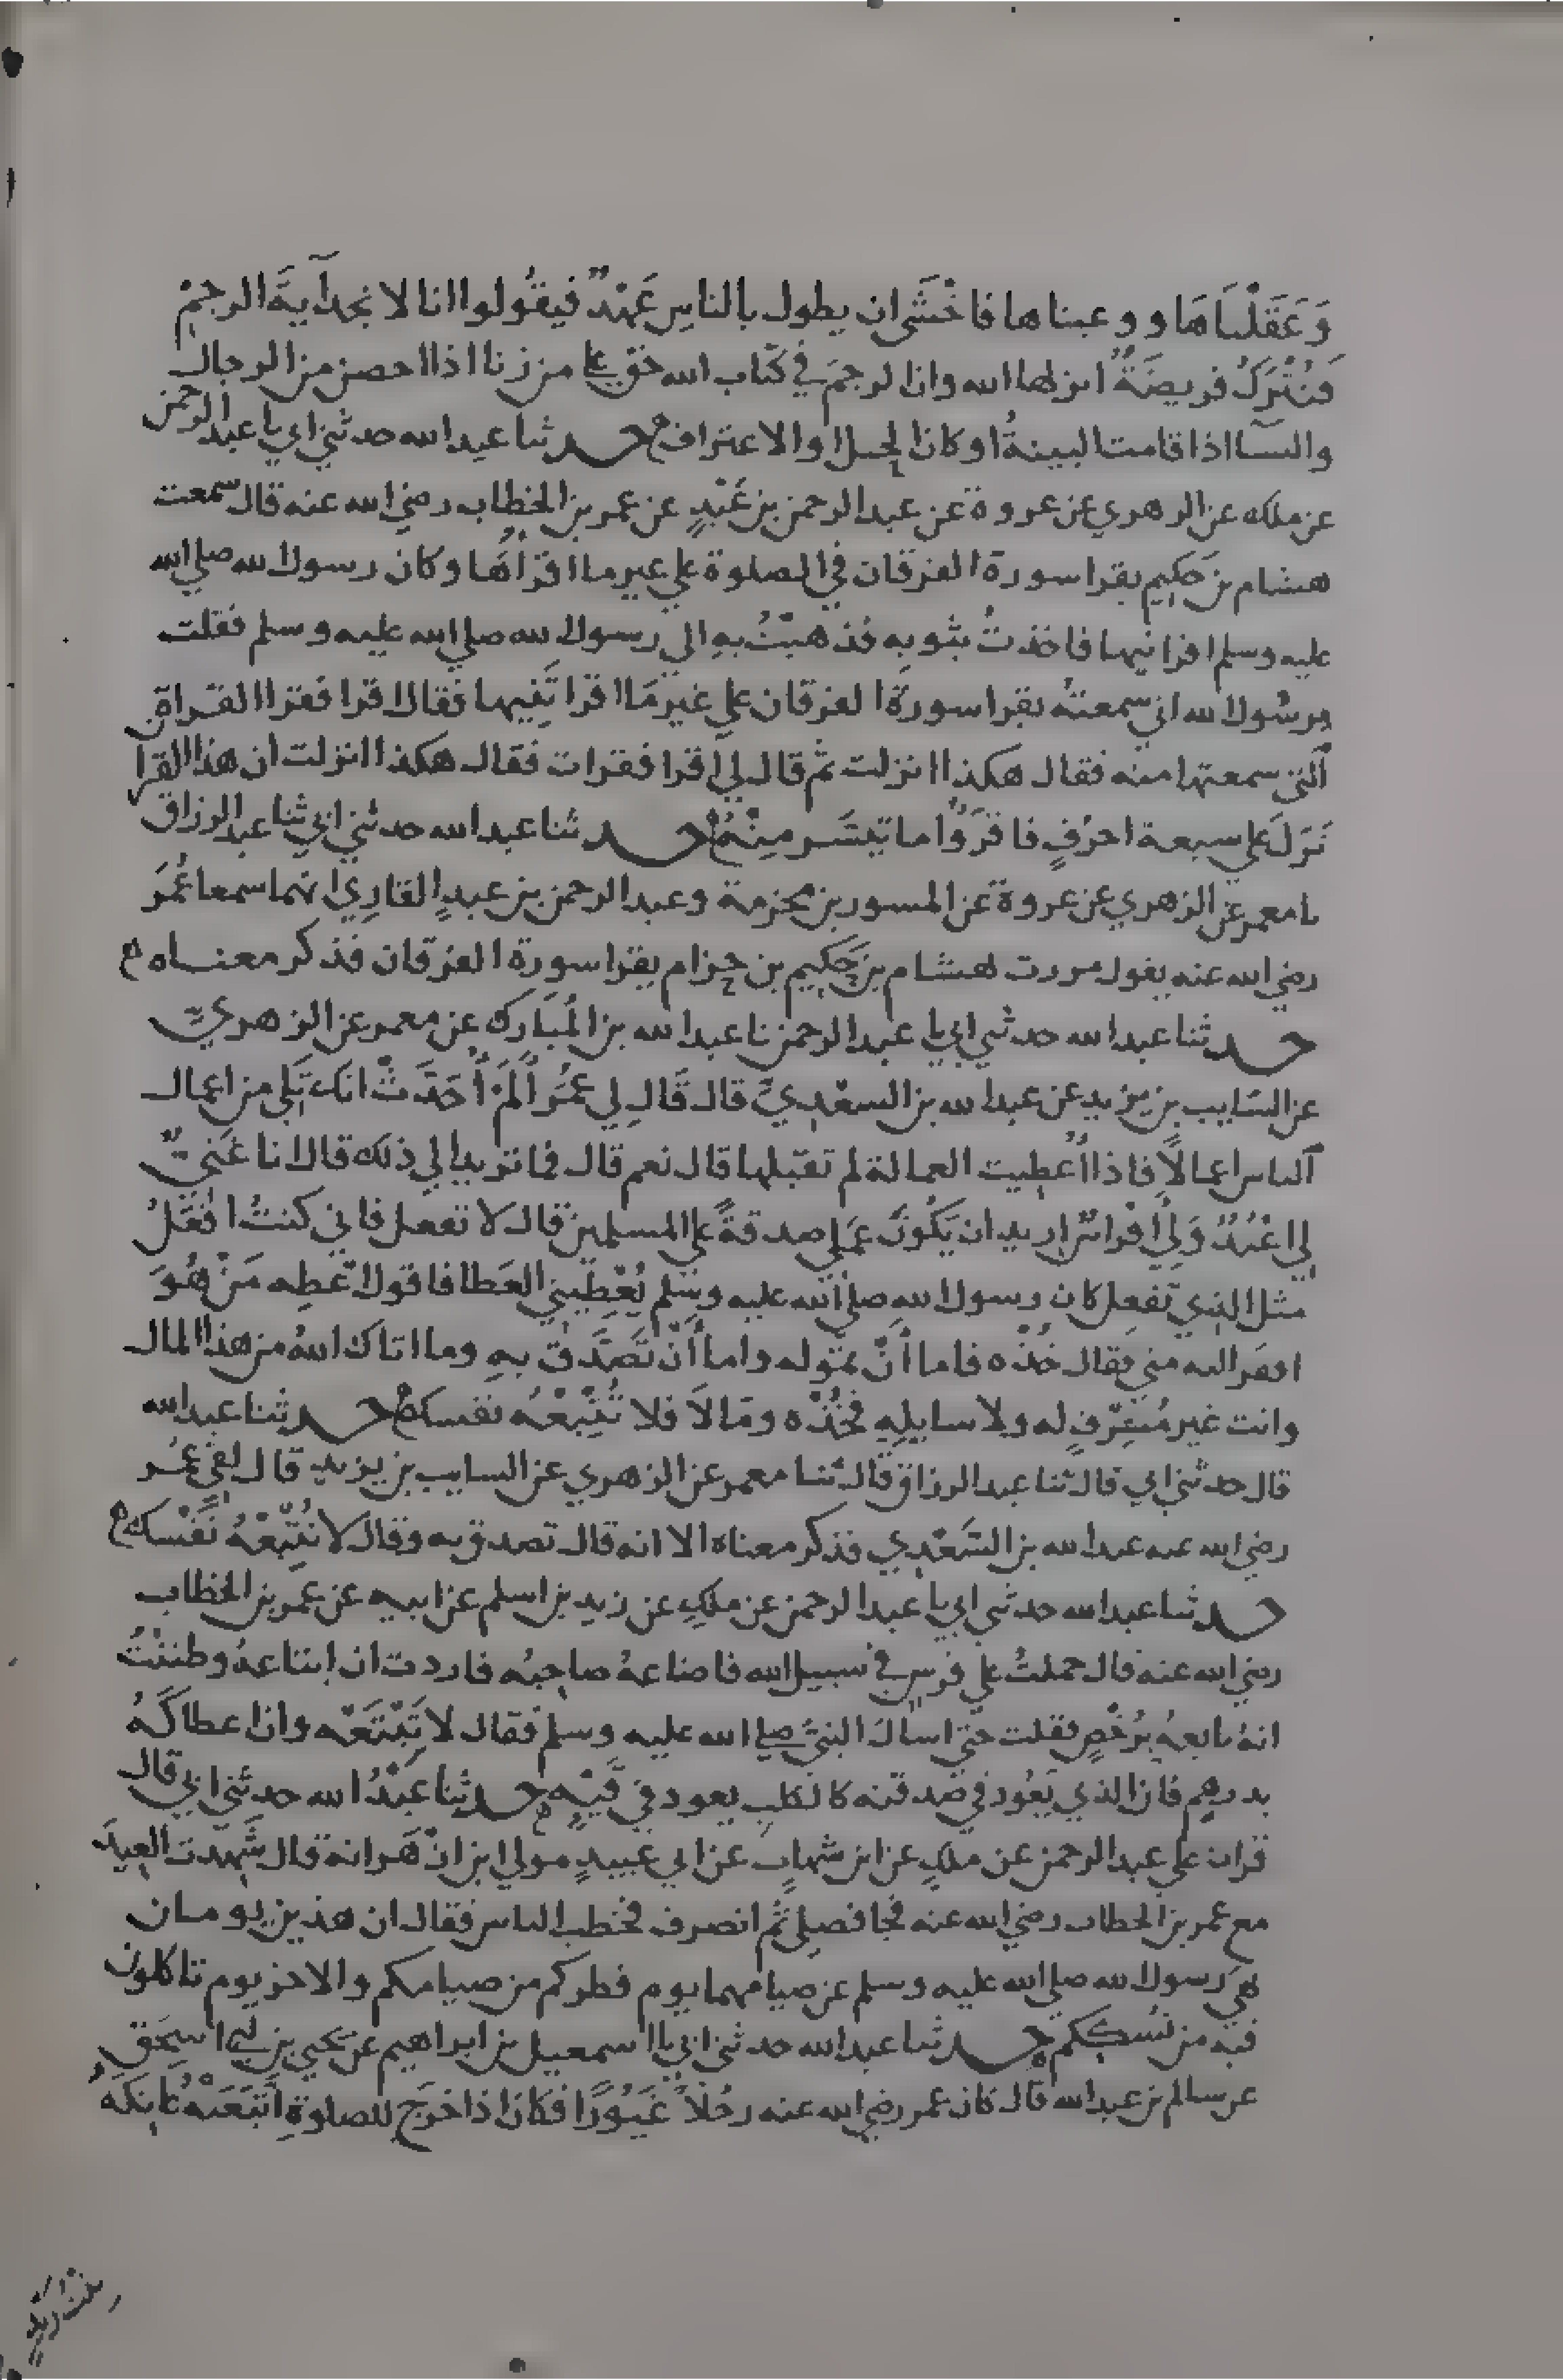 وَعَقَلْنَاهَا ووعيناها فاخْشَى ان يطول بالناسِ عَهْدٌ فيقُولوا انا لا نجد آيةَ الرجمْ
فتُتْرَكُ فريضَةٌ انزلها الله وان الرجمَ في كتاب الله حق على من زنا اذا احصن من الرجال
والنسآ اذا قامت البينةُ او كان الحبل او الاعتراف حدثنا عبد الله حدثني ابي نا عبد الرحمن
عن ملك عن الزهري عن عروة عن عبد الرحمن بن عَبْدٍ عن عمر بن الخطاب رضي الله عنه قال سمعت
هشام بن حَكِيم يقرا سورة الفرقان في الصلوة على غير ما اقرأُها وكان رسول الله صلى الله
عليه وسلم اقرانيها فاخذتُ بثوبهِ فذهبْتُ بهِ الى رسول الله صلى الله عليه وسلم فقلت
يرسُول الله اني سمعتهُ يقرا سورةَ الفرقان على غير مَا اقراتَنِيها فقال اقرا فقرا القراة
اَلتي سمعتها منه فقال هكذا انزلت ثم قال لي اقرا فقرات فقال هكذا انزلت ان هذا القران
نَزَلَ على سبعة احرُفٍ فاقرَوُا ما تيسَّر مِنْهُ حدثنا عبد الله حدثني ابي ثنا عبد الرزاق
نا معمر عن الزهري عن عروة عن المسور بن مخرمة وعبد الرحمن بن عبدٍ القارِيِّ انهما سمعا عُمَرَ
رضي الله عنه يقول مررت لهشام بن حَكِيم بن حِزام يقرا سورة الفرقان فذكر معناه
حدثنا عبد الله حدثني ابي نا عبد الرحمن نا عبد الله بن المُبَارك عن معمر عن الزهريّ
عن السّايب بن يزيد عن عبد الله بن السعْدِيِّ قال قَال لي عُمَرُ أَلَمْ أُحَدَّثْ انك تَلِي من اعمال
اَلناس اعمالًا فاذا أُعطِيت العمالة لم تقبلها قال نعم قال فما تريد الى ذلك قال انا غَنيٌّ
لي اعْبُدٌ وَلِي أفراسٌ اريد ان يَكُونَ عَمَلي صدقةً على المسلمين قال لا تفعل فاني كنتُ افْعَلُ
مثل الذي تفعل كان رسول الله صلى الله عليه وسلم يُعْطِيني العَطا فاقول اعطِه مَنْ هُوَ
افقَر اليه مني فقال خُذْه فاما أَنْ تموله واما أَنْ تَصَدَّق به وما اتاك اللهُ من هذا المال
وانت غير مُشرِفٍ له ولا سايلِهِ فخُذْه ومَا لَا فلا تُتْبِعْهُ نفسك حدثنا عبد الله
قال حدثني ابي قال ثنا عبد الرزاق قال ثنا معمر عن الزهري عن السايب بن يزيد قال لقي عُمر
رضي الله عنه عبد الله بن السَّعْدِي فذكر معناه الا انه قال تصدق به وقال لا تُتْبِعْهُ نَفْسك
حدثنا عبد الله حدثني ابي نا عبد الرحمن عن ملكٍ عن زيد بن اسلم عن ابيه عن عمر بن الخطاب
رضي الله عنه قال حملتُ على فرسٍ في سبيل الله فاضاعهُ صاحِبُه فاردت ان ابتاعهُ وظننْتُ
انهُ بايعهُ برُخْصٍ فقلت حتى اسالَ النبيَّ صلى الله عليه وسلم فقال لا تَبْتَعْه وان اعطاكَهُ
بدرهمٍ فان الذي يَعُود في صدقته كالكلبِ يعود في قَيْئِهِ حدثنا عَبْدُ الله حدثني ابي قال
قرات على عبد الرحمن عن ملكٍ عن ابن شهابٍ عن ابي عبيدٍ مولى ابن ازْهَر انه قال شَهِدت العِيدَ
مع عمر بن الخطاب رضي الله عنه فجا فصلى ثُم انصرف فخطب الناس فقال ان هذين يومان
نهَى رسول الله صلى الله عليه وسلم عن صيامهما يوم فطركم من صيامكم والاخر يوم تاكلون
فيه من نُسككم حدثنا عبد الله حدثني ابي نا اسمعيل بن ابراهيم عن يحيى بن ابي اسحَق
عن سالم بن عبد الله قال كان عمر رضي الله عنه رجُلاً غَيُورًا فكان اذا خرَج للصلوةِ اتَّبَعَتْهُ عَاتِكَةُ